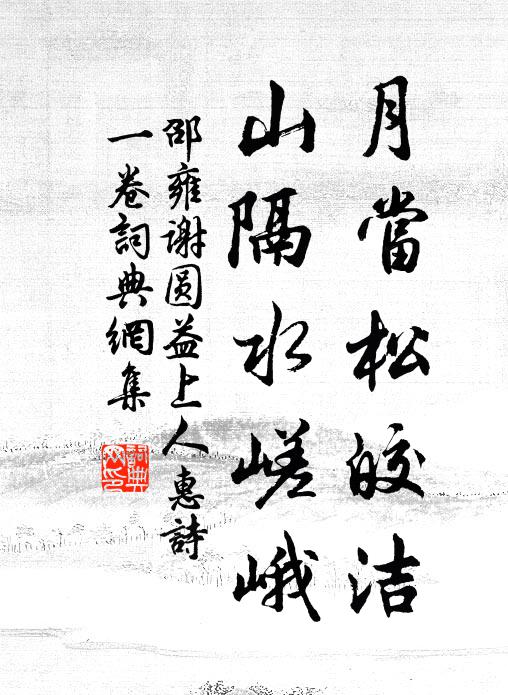 月當松皎洁
山隔水嵯峨
邵雍谢圆益上人惠詩
一卷詞典網集
詞典网印